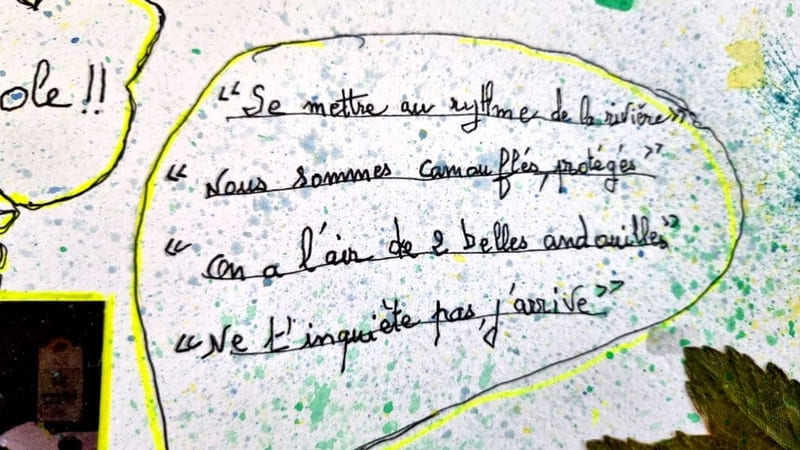 ole !!
"Se mettre au rythme de la rivière"
"Nous sommes camouflés, protégés"
"On a l'air de 2 belles andouilles"
"Ne t'inquiète pas, j'arrive"